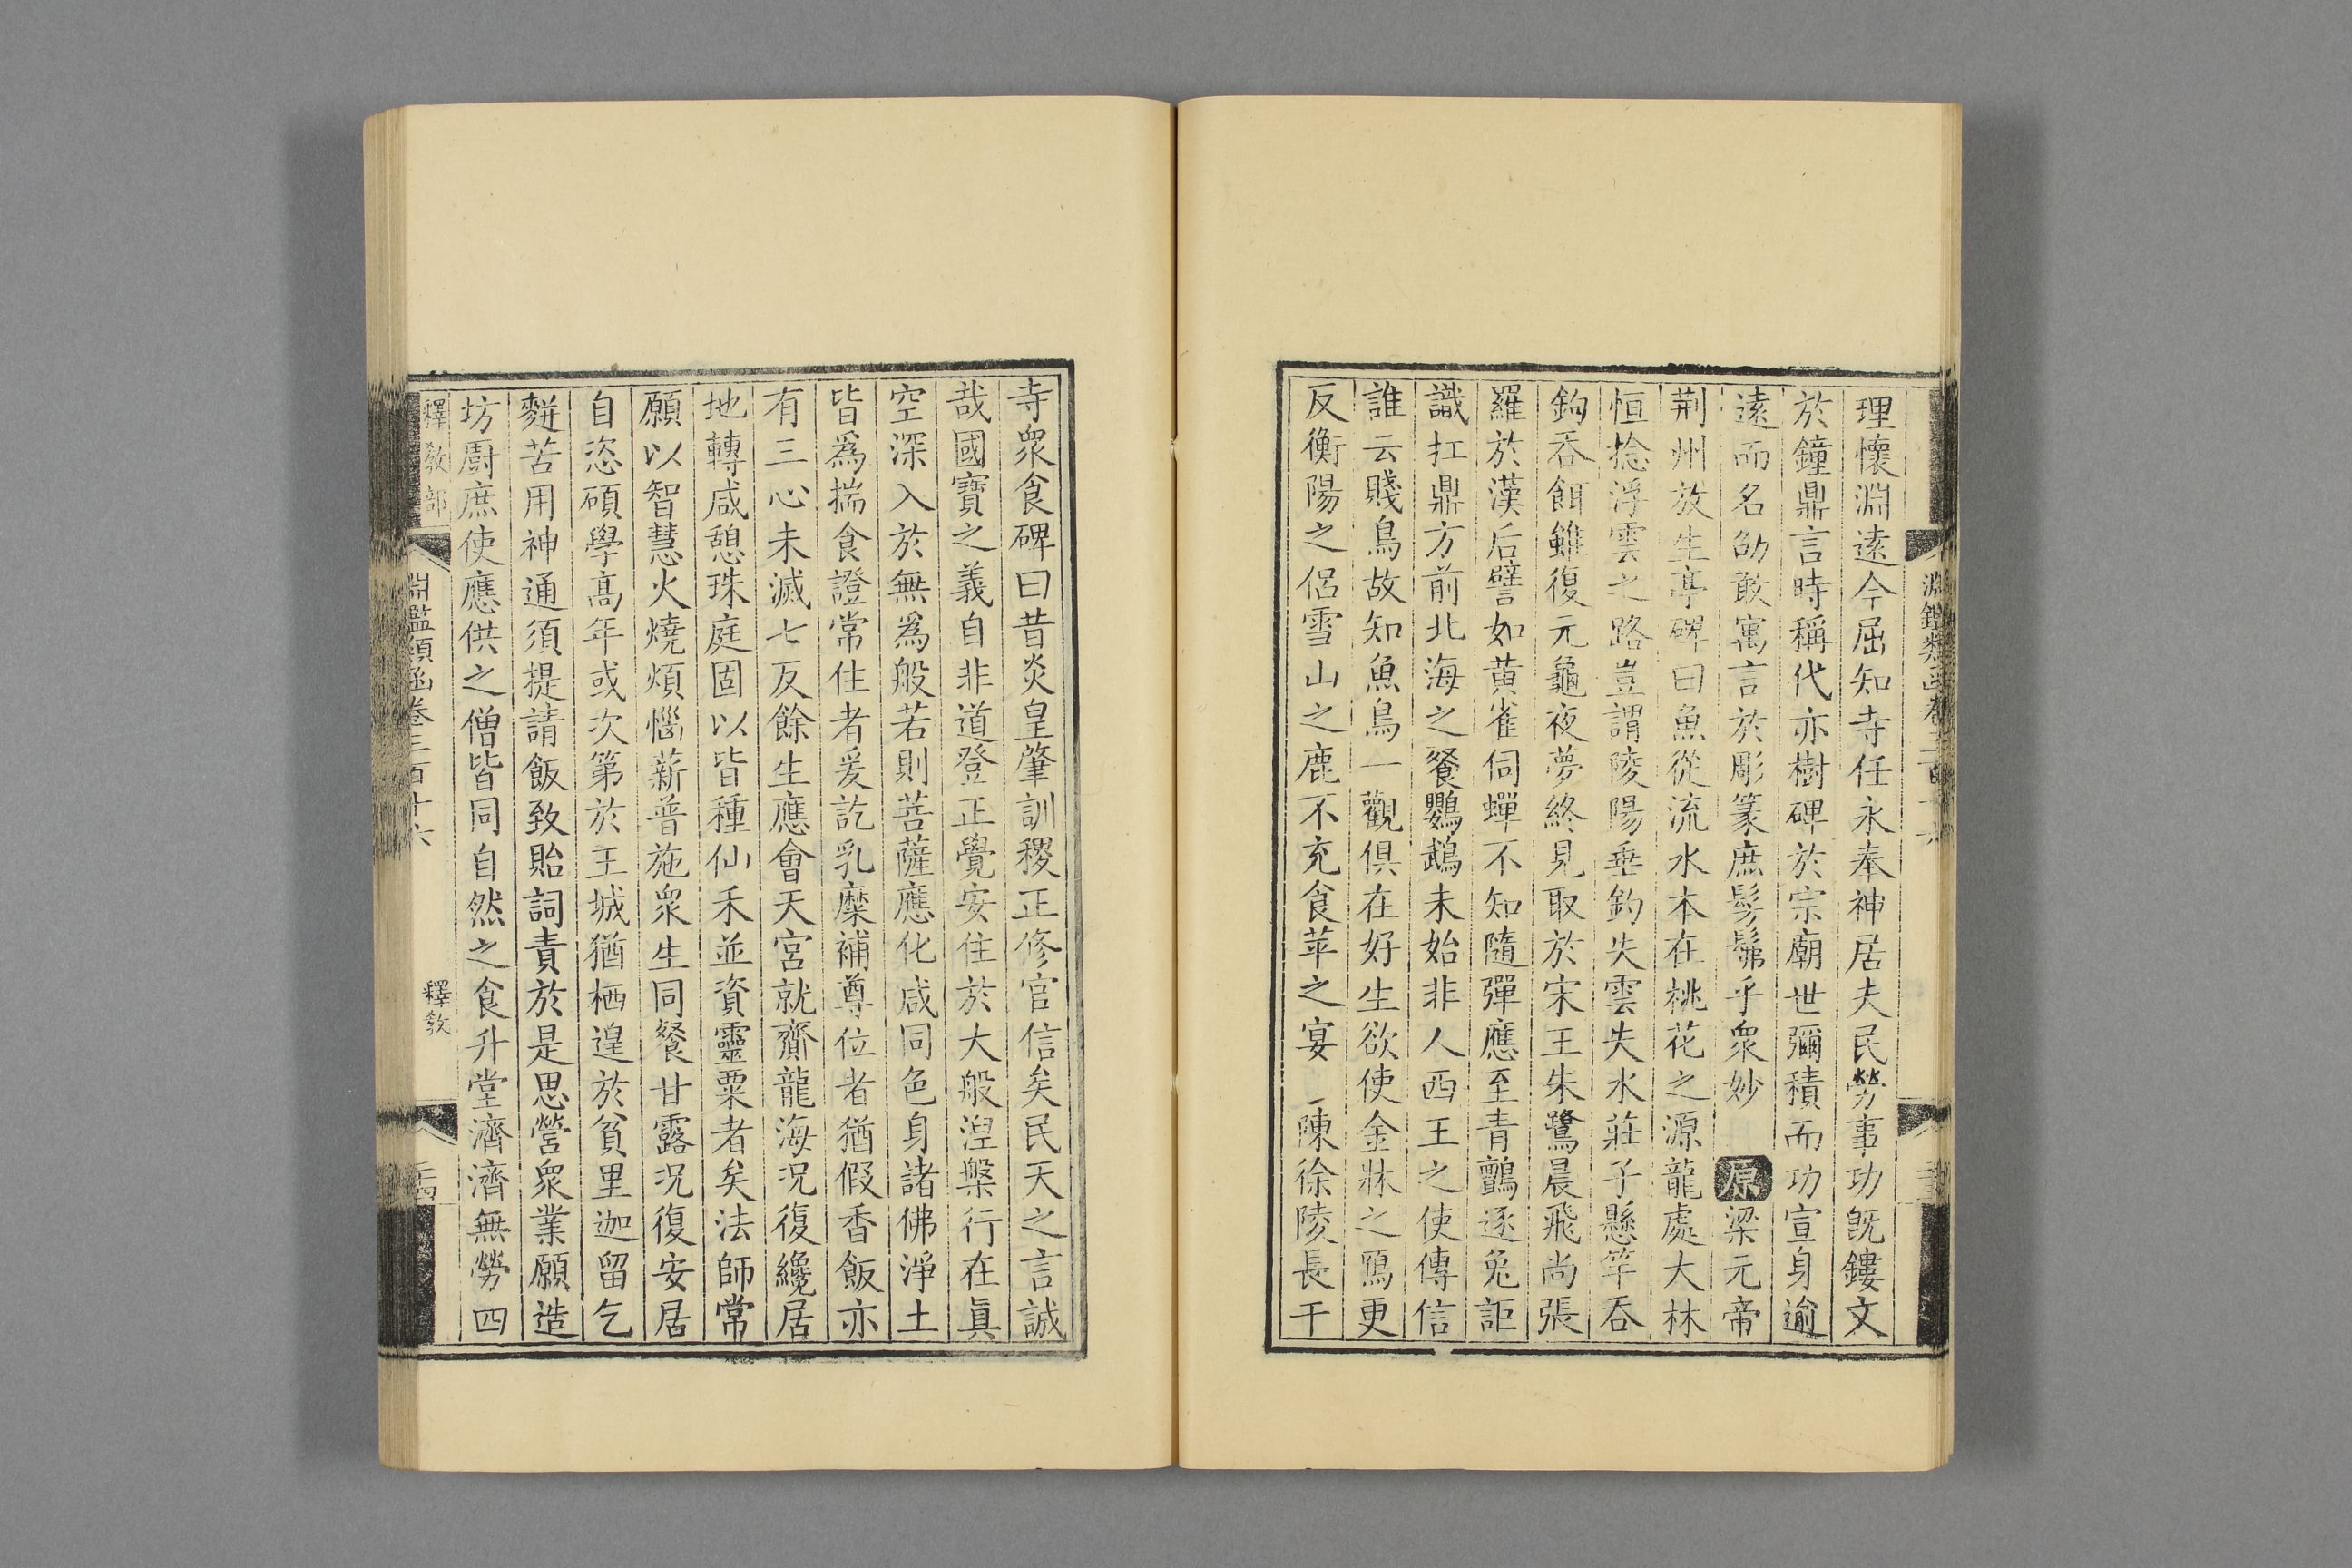 理懷淵遠今屈知寺任永奉神居夫民勞事功既鏤文
於鐘鼎言時稱代亦樹碑於宗廟世彌積而功宣身逾
遠而名劭敢寓言於彫篆庶髣髴乎衆妙　原梁元帝
荆州放生亭碑曰魚從流水本在桃花之源龍處大林
恒捻浮雲之路豈謂陵陽垂釣失雲失水莊子懸竿吞
鉤吞餌雖復元龜夜夢終見取於宋王朱鷺晨飛尚張
羅於漢后譬如黄雀伺蟬不知隨彈應至青鸇逐兔詎
識扛鼎方前北海之餐鸚鵡未始非人西王之使傳信
誰云賤鳥故知魚鳥一觀俱在好生欲使金牀之鴈更
反衡陽之侶雪山之鹿不充食苹之宴　陳徐陵長干
寺衆食碑曰昔炎皇肇訓稷正修官信矣民天之言誠
哉國寶之義自非道登正覺安住於大般湼槃行在眞
空深入於無爲般若則菩薩應化咸同色身諸佛淨土
皆爲揣食證常住者爰訖乳糜補尊位者猶假香飯亦
有三心未滅七反餘生應會天宮就齋龍海况復纔居
地轉咸憩珠庭固以皆種仙禾並資靈粟者矣法師常
願以智慧火燒煩惱薪普施衆生同餐甘露况復安居
自恣碩學高年或次第於王城猶栖遑於貧里迦留乞
麨苦用神通須提請飯致貽詞責於是思營衆業願造
坊厨庶使應供之僧皆同自然之食升堂濟濟無勞四
釋教部
淵鑑類函卷三百十六
釋教